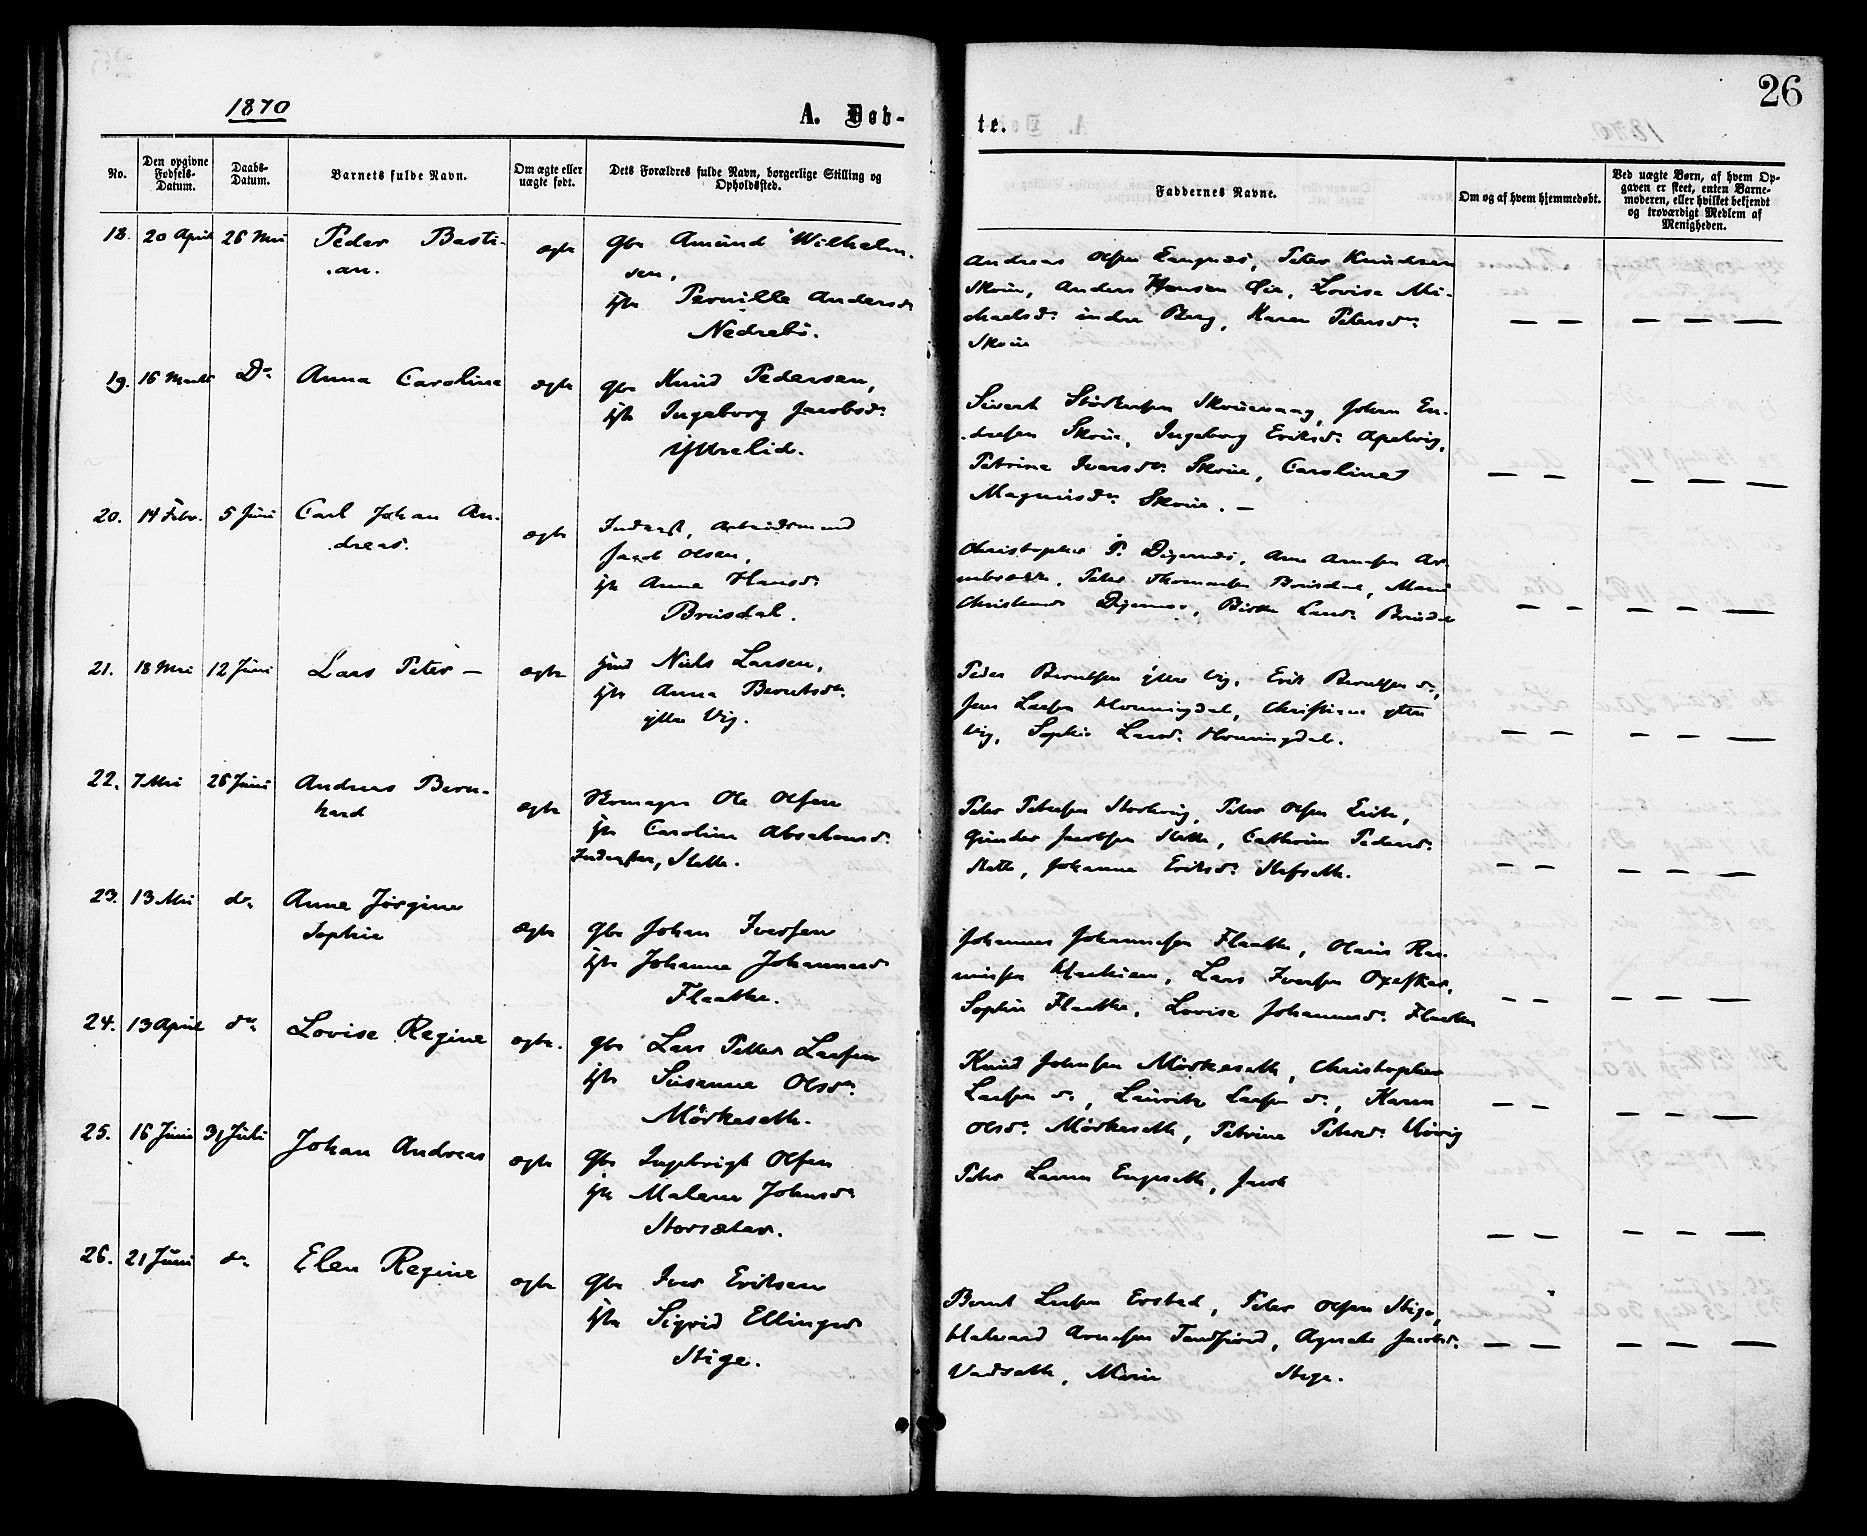 26
1870
A. Døb-
te.
No.
Den opgivne Fødsels-Datum.
Daabs-Datum.
Barnets fulde Navn.
Om ægte eller uægte født.
Dets Forældres fulde Navn, borgerlige Stilling og Opholdssted.
Faddernes Navne.
Om og af hvem hjemmedøbt.
Ved uægte Børn, af hvem Op-
gaven er skeet, enten Barne-
moderen, eller hvilket bekjendt
og troværdigt Medlem af
Menigheden.
18. 20 April 26 Mai Peder Basti- ægte Gbr Amund Wilhelm-
an. sen,
Pernille Andersdr
Nedrebö.
Andreas Olsen Peter Knudsen
Skoue, Anders Hansen Lovise Mi-
chaelsdr indre Berg, Karen Petersdr
Skoue
19. 16 Marts Do Anna Caroline ægte Gbr Knud Pedersen,
Ingeborg Jacobsdr
Yttrelid.
Sivert Skouevaag, Johan En-
dresen Skoue, Ingeborg Eriksdr Apelvig,
Petrine Iversdr Skoue, Caroline
Magnusdr Skoue. —
20. 14 Febr. 5 Juni Carl Johan An- ægte Inderst, Arbeidsmand
dreas. Jacob Olsen,
Anna Hansdr
Brusdal.
Christopher P. Digernes, Arne Arnesen
Peter Thomassen Brusdal,
Digernes, Larsdr Brusdal
21. 18 Mai 12 Juni Lars Peter — ægte Niels Larsen,
Anna Berntsdr
ytre Vig.
Peder Berntsen ytre Vig, Erik Berntsen do,
Jens Larsen Honningdal, Christiane ytre
Vig, Sophie Larsdr Honningdal.
22. 7 Mai 26 Juni Andreas Bern- ægte Skomager Ole Olsen
hard Caroline Absalonsdr
Inderster, Slette.
Peter Petersen Storvig, Peter Olsen
Gunder Jacobsen Slette, Cathrine Pedersdr
Slette, Johanne Eriksdr
23. 13 Mai do Anna Jørgine ægte Gbr Johan Iversen
Sophie Johanne Johannesdr
Flaathe.
Johannes Johannesen Flaathe, Olaus Ras-
musen Lars Iversen
Sophie Flaathe, Lovise Johannesdr Flaathe
24. 13 April do Lovise Regine ægte. Gbr Lars Petter Larsen
Susanne Olsdr
Mörkeseth.
Knud Johnsen Mörkeseth, Christopher
Larsen do, Lauritz Larsen do, Karen
Olsdr Mörkeseth, Petrine Petersdr
25. 16 Juni 31 Juli Johan Andreas ægte Gbr Ingebrigt Olsen
Malene Johnsdr
Storsæter.
Peter Engeseth, Jacob
26. 21 Juni do Elen Regine ægte Gbr Iver Eriksen
Sigrid Ellingsdr
Stige.
Bernt Larsen Erstad, Peter Olsen Stige,
Halvard Arnesen Tandfjord, Agnete Jacobsdr
Vadseth, Marie Stige.